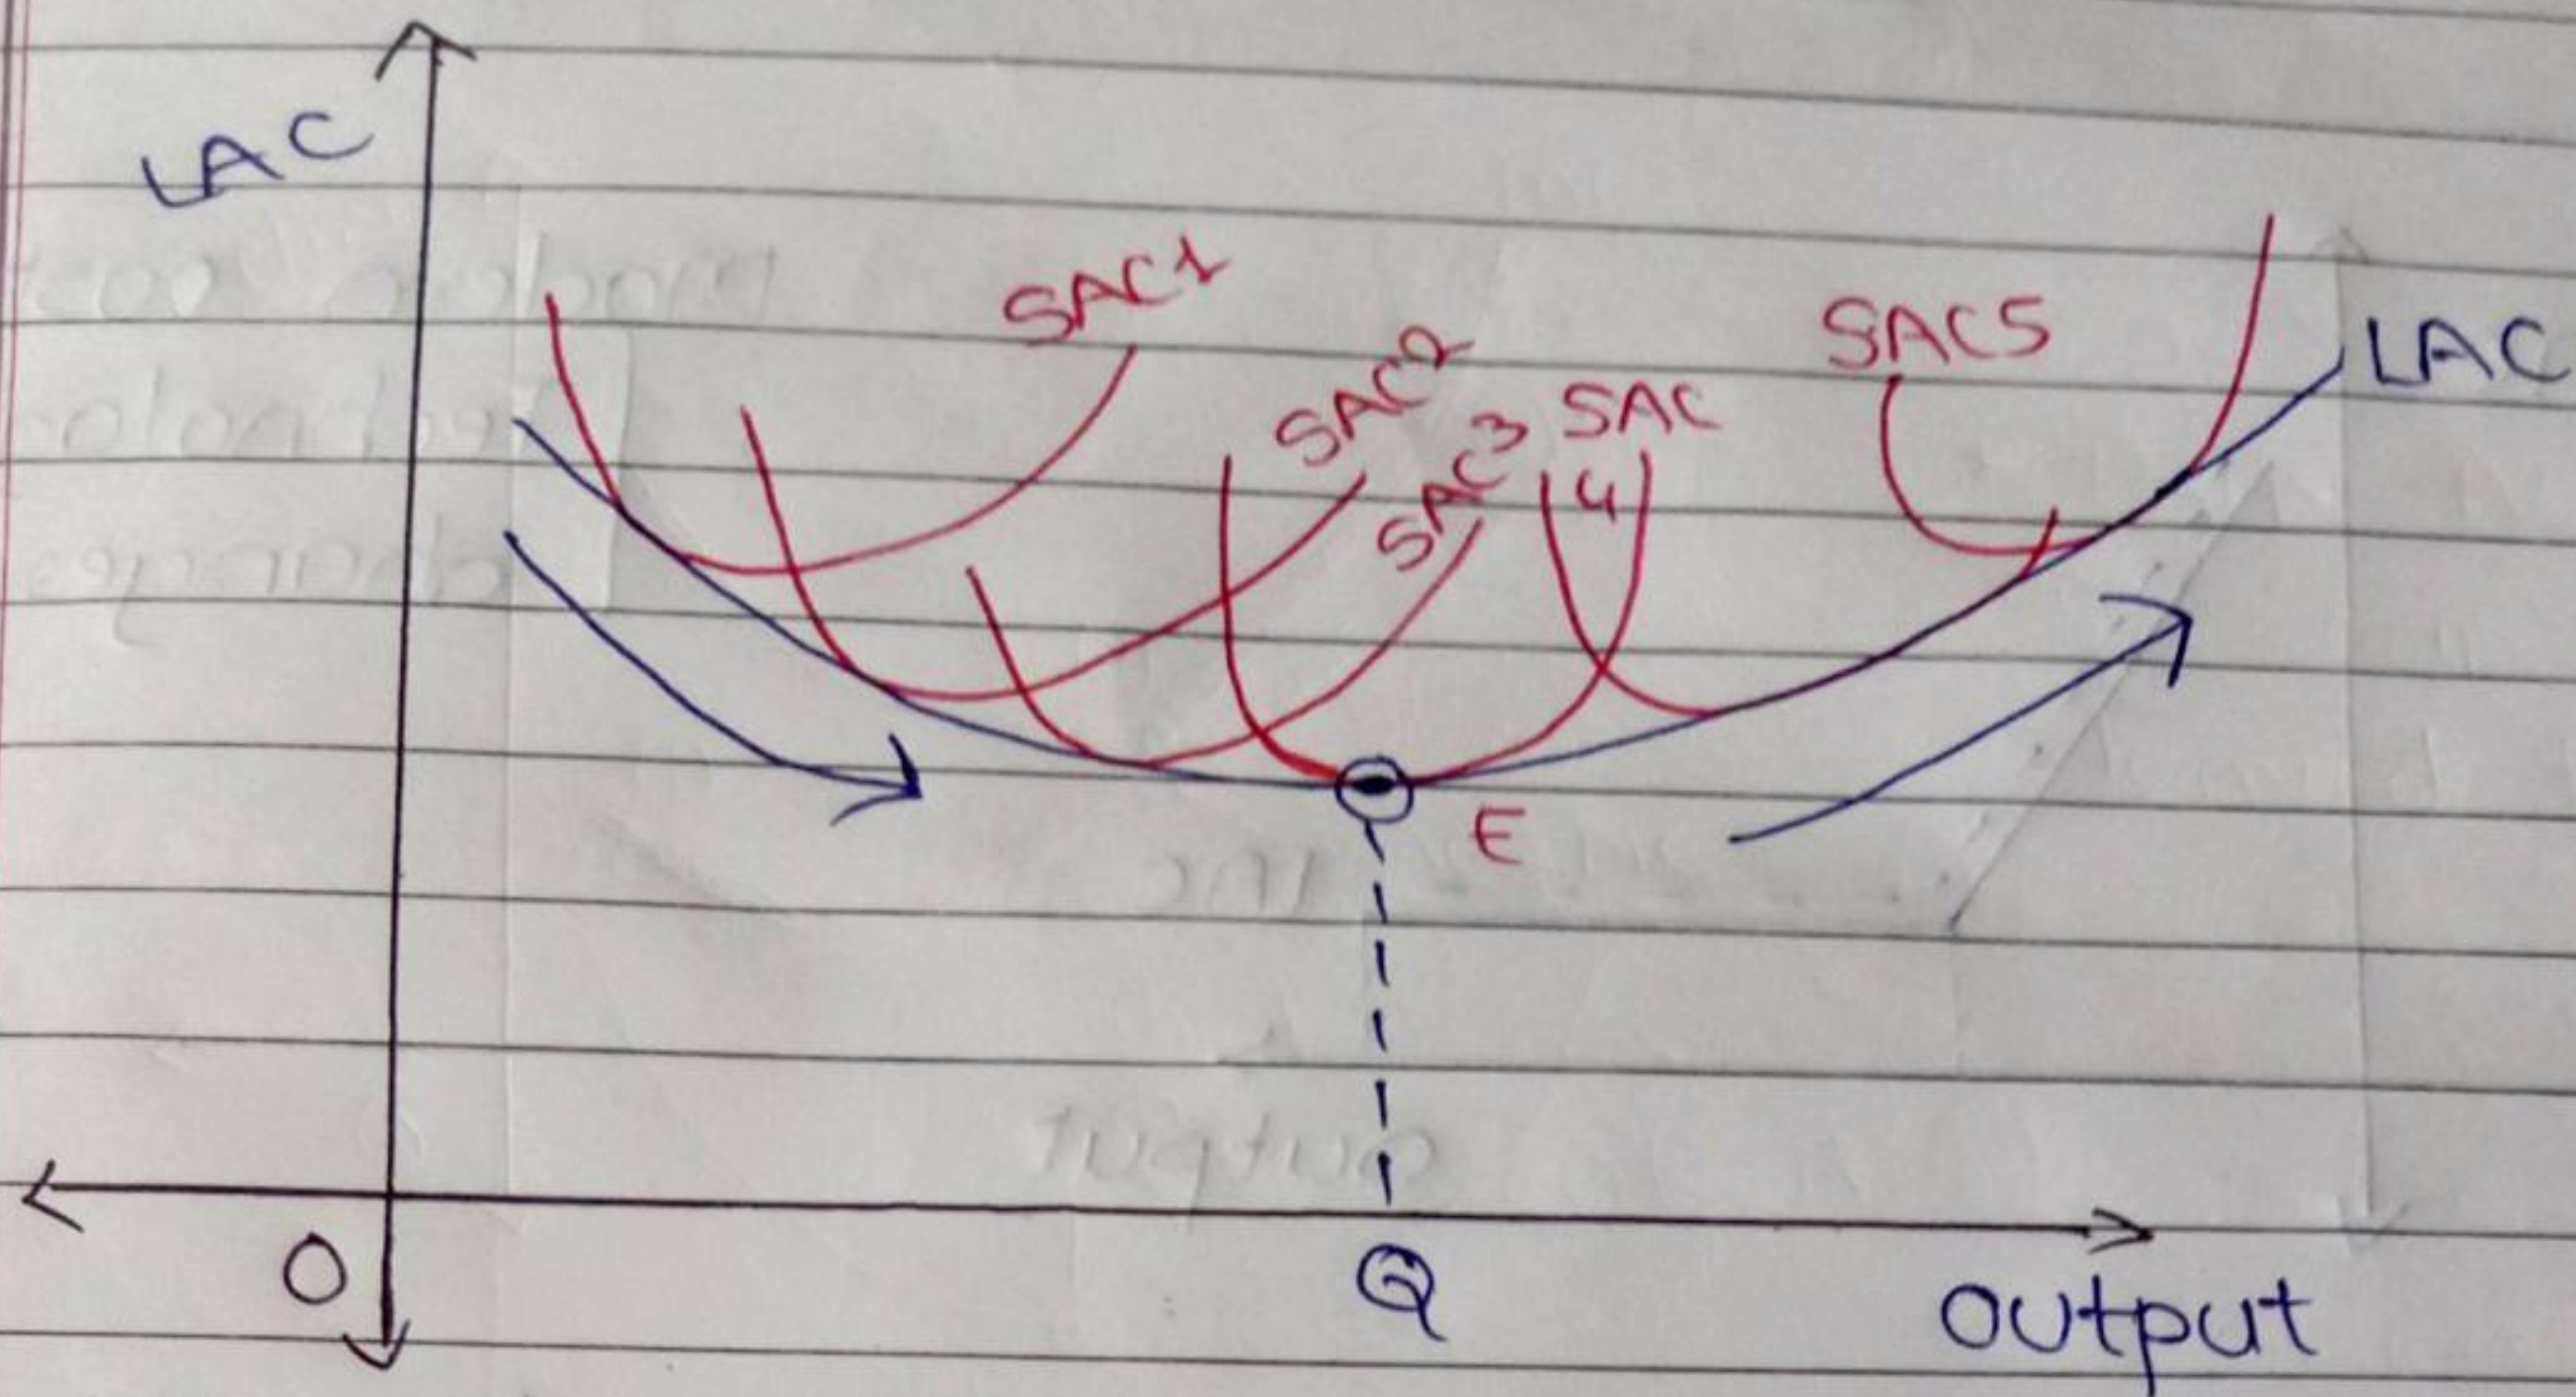 LAC
SAC1
SAC2
SAC3
SAC
4
SAC5
LAC
E
O
Q
output